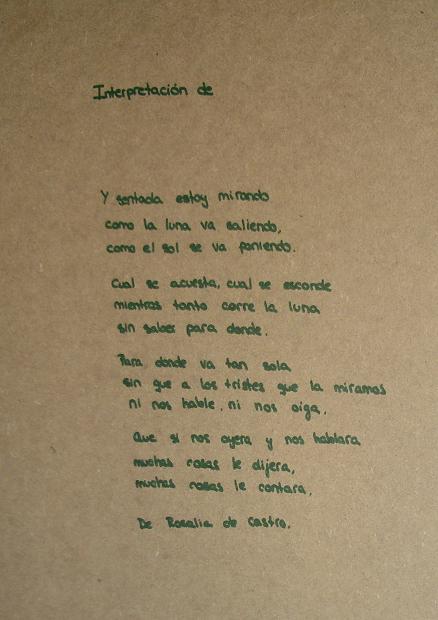 Interpretación de
Y sentada estoy mirando
como la luna va saliendo,
como el sol se va poniendo.
Cual se acuesta, cual se esconde
mientras tanto corre la luna
sin saber para donde.
Para donde va tan sola
sin que a los tristes que la miramos
ni nos hable, ni nos oiga.
Que si nos oyera y nos hablara
muchas cosas le dijera,
muchas cosas le contara.
De Rosalia de Castro.